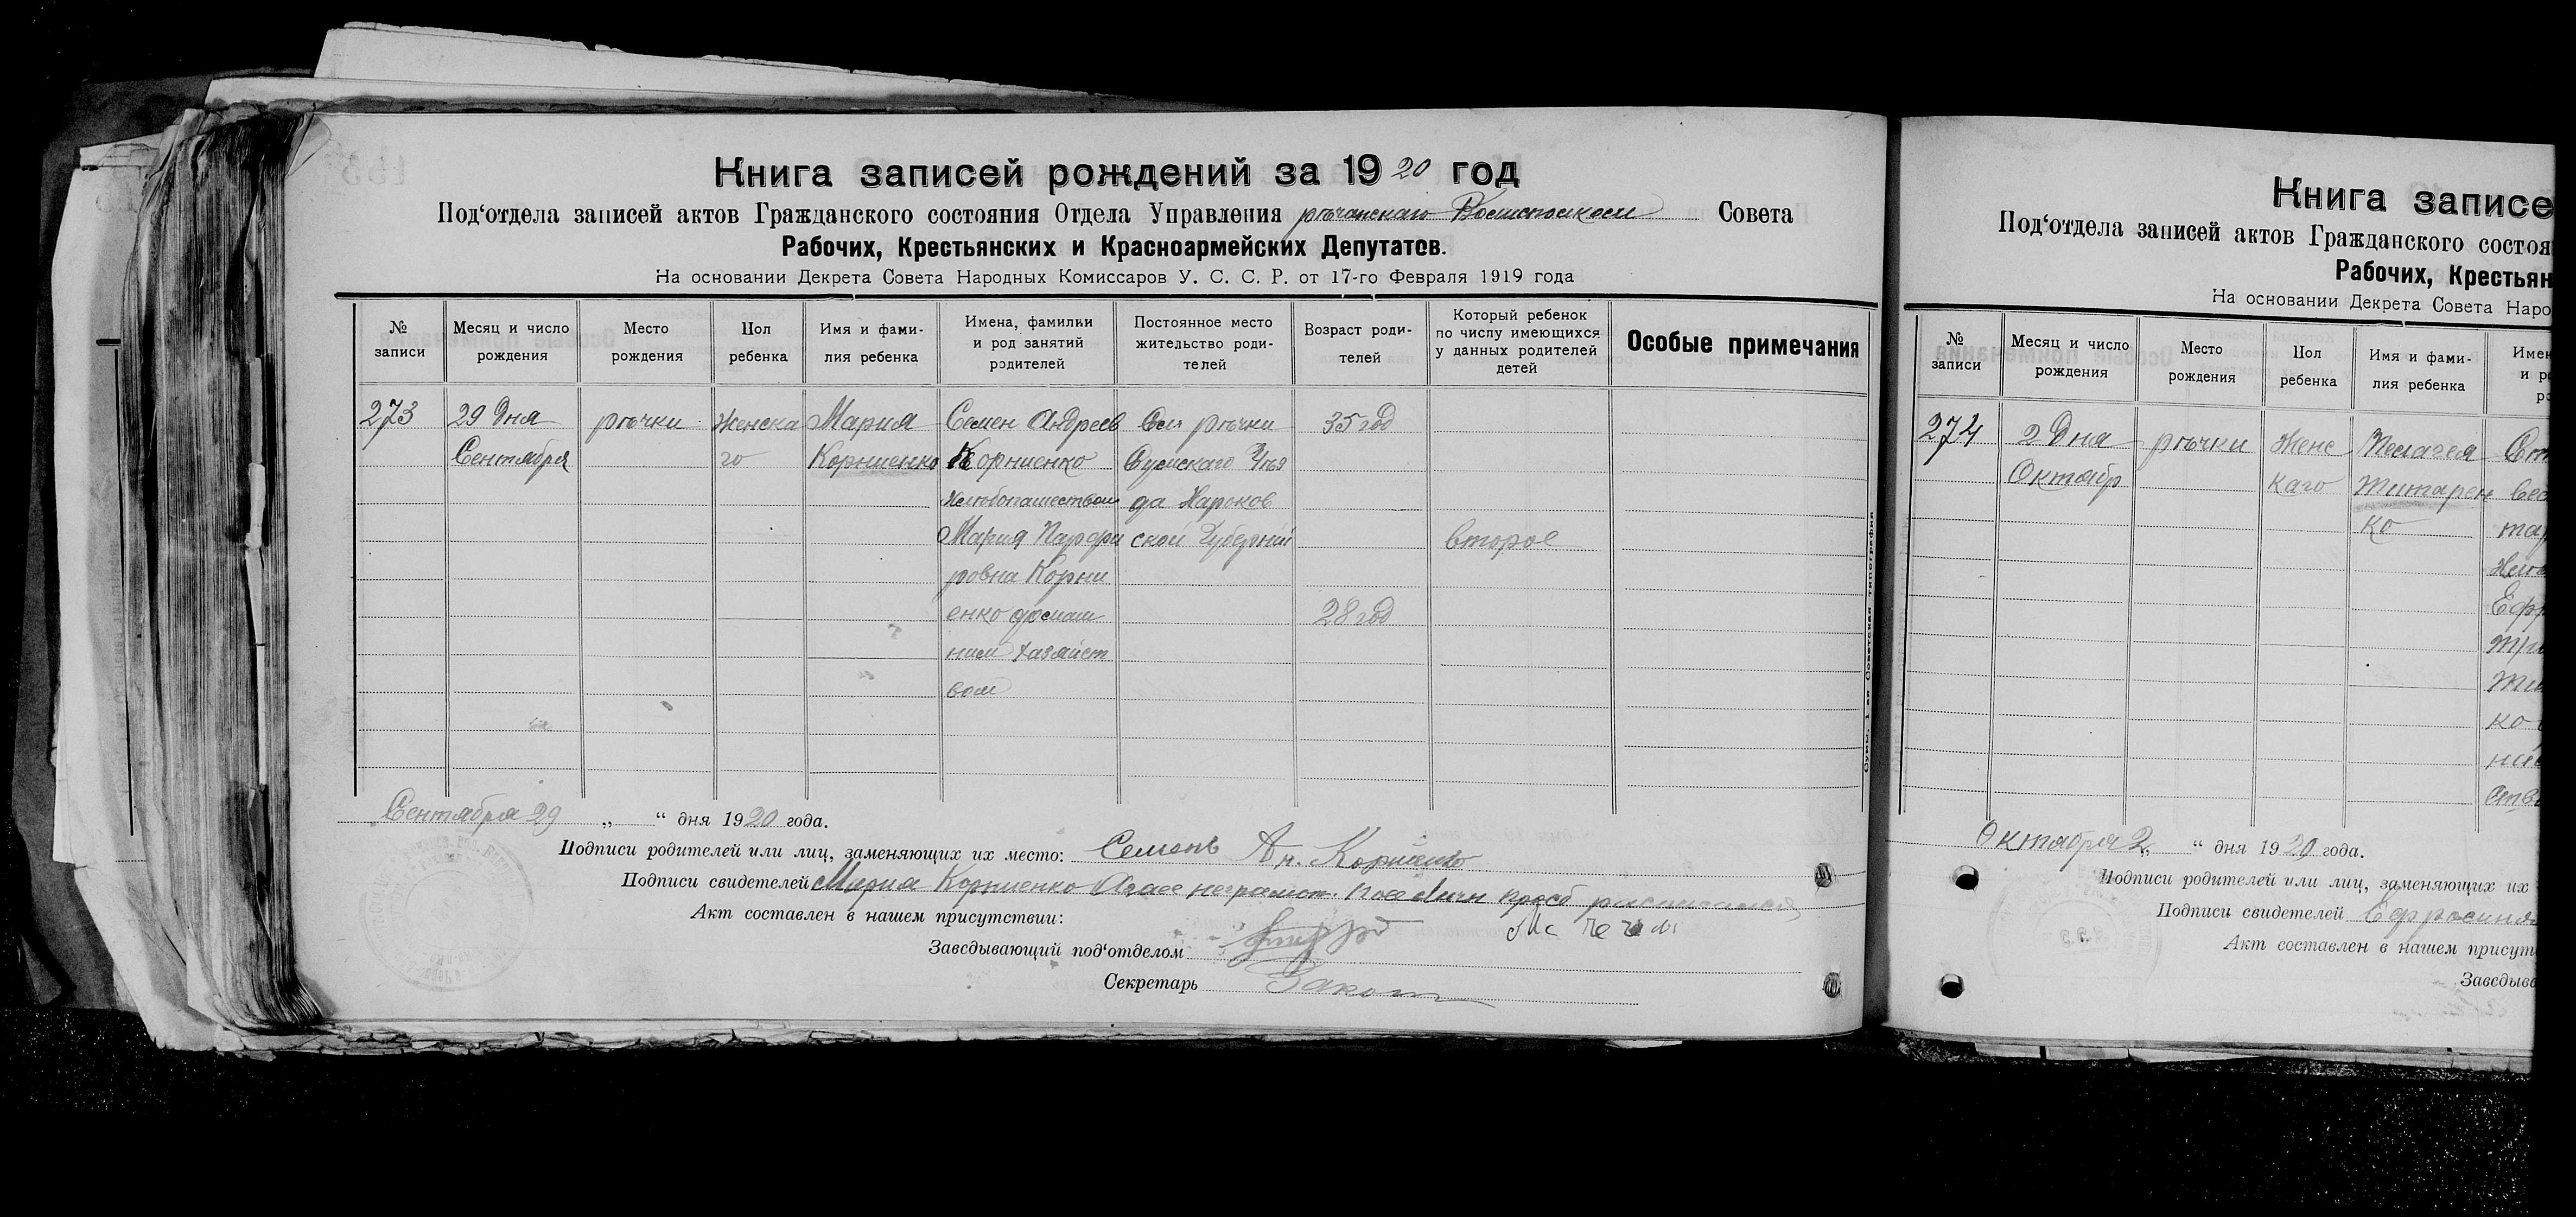 Книга записей рождений за 1920 год
Под‘отдела записей актов Гражданского состояния Отдела Управления рѣчанскаго Волисполкоми Совета
Рабочих, Крестьянских и Красноармейских Депутатов.
На основании Декрета Совета Народных Комиссаров У. С. С. Р. от 17-го Февраля 1919 года
№ записи
Месяц и число рождения
Место рождения
Пол ребенка
Имя и фами-
лия ребенка
Имена, фамилки
и род занятий
родителей
Постоянное место
жительство роди-
телей
Возраст роди-
телей
Который ребенок
по числу имеющихся
у данных родителей
детей
Особые примечания
273
29 Дня
Сентября
рѣчки
Женска
го
Мария
Корниенко
Семен Андреев
Корниенко
Хлѣбопашеством
Мария Парфи
ровна Корни
енко домаш
ним Хазяйст
вом
Сел рѣчки
Сумскаго Уѣз
да Харьков
ской Губернии
35 год
28 год
второе
Сумы. 1-ая Советская типография
Сентября 29 „ “ дня 1920 года.
Подписи родителей или лиц, заменяющих их место: Семенъ Ан. Корниенко
Подписи свидетелей Мария Корниенко неграмот. росписался
Акт составлен в нашем присутствии:
Заведывающий под‘отделом
Секретарь
Книга записе
Под‘отдела записей актов Гражданского состоя
Рабочих, Крестьян
На основании Декрета Совета Наро
№ записи
Месяц и число рождения
Место рождения
Пол ребенка
Имя и фами-
лия ребенка
Имен
и р
ро
274
2 Дня
Октябр
рѣчки
Женс
каго
Пелагея
Титарен
ко
Октября 2 „ “ дня 1920 года.
Подписи родителей или лиц, заменяющих их
Подписи свидетелей Ефросиния
Акт составлен в нашем присут
Заведыва